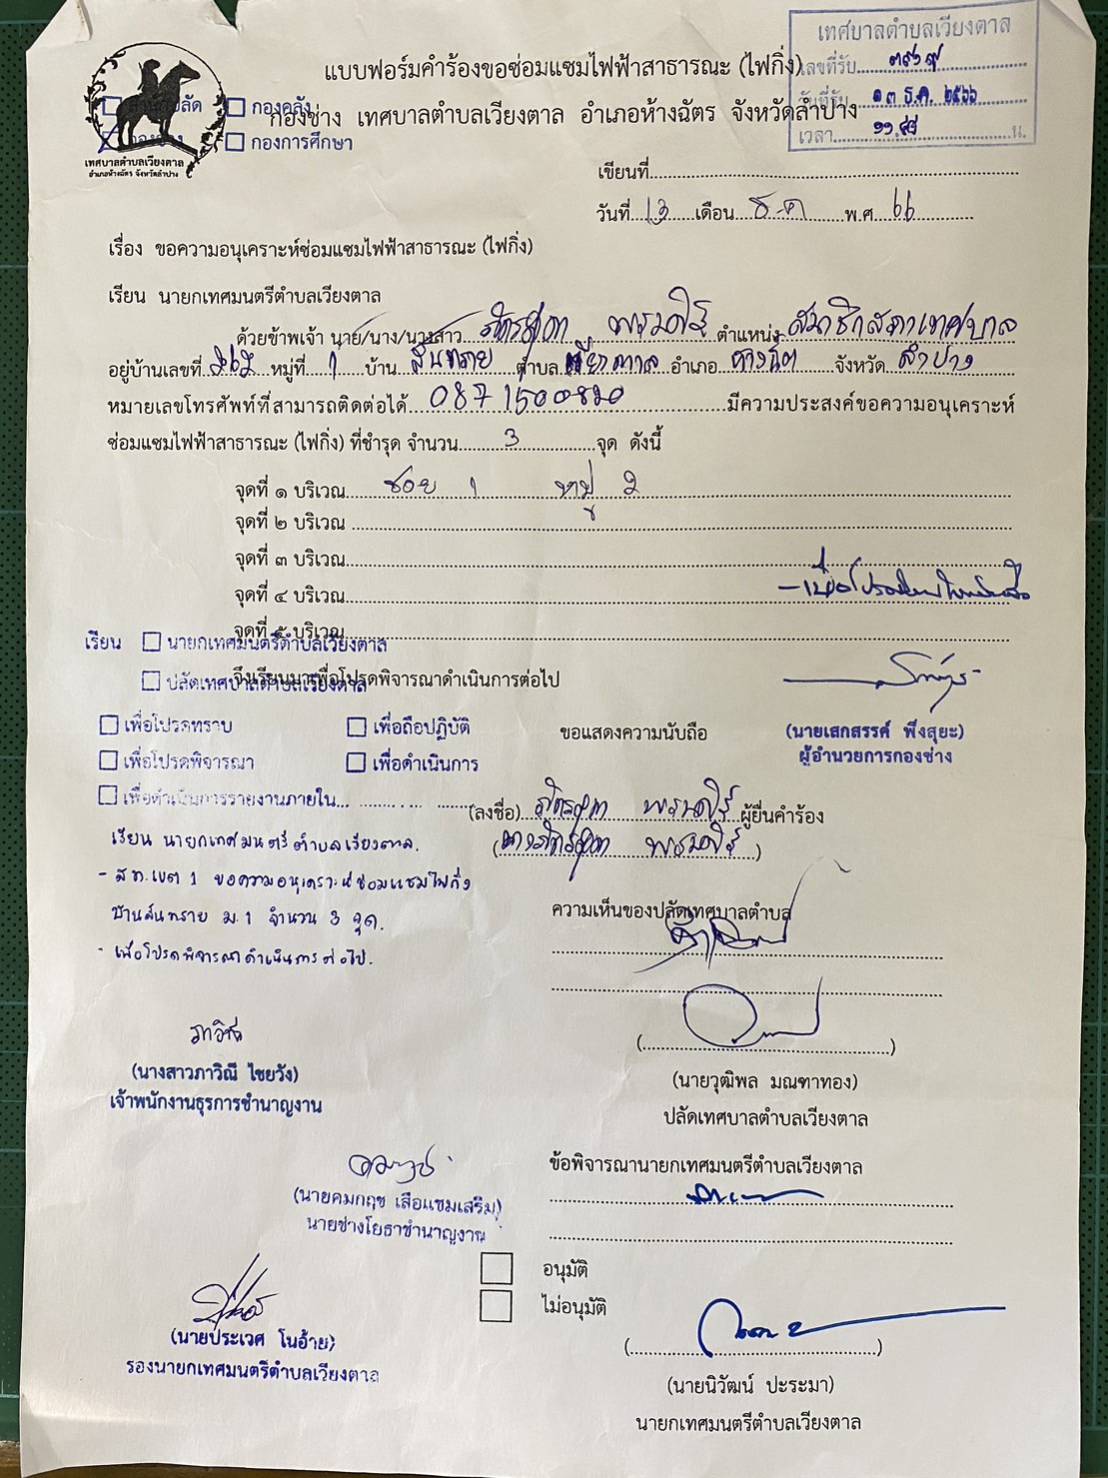 เทศบาลตำบลเวียงตาล
เลขที่รับ
วันที่รับ ๑๓ ธ.ค. ๒๕๖๖
เวลา น.
แบบฟอร์มคำร้องขอซ่อมแซมไฟฟ้าสาธารณะ (ไฟกิ่ง)
กองช่าง เทศบาลตำบลเวียงตาล อำเภอห้างฉัตร จังหวัดลำปาง
กองคลัง
กองการศึกษา
เทศบาลตำบลเวียงตาล
อำเภอห้างฉัตร จังหวัดลำปาง
เขียนที่
วันที่ 13 เดือน ธ.ค พ.ศ. 66
เรื่อง ขอความอนุเคราะห์ซ่อมแซมไฟฟ้าสาธารณะ (ไฟกิ่ง)
เรียน นายกเทศมนตรีตำบลเวียงตาล
ด้วยข้าพเจ้า นาย/นาง/นางสาว ตำแหน่ง สมาชิกสภาเทศบาล
อยู่บ้านเลขที่ หมู่ที่ 1 บ้าน สันทราย ตำบล เวียงตาล อำเภอ ห้างฉัตร จังหวัด ลำปาง
หมายเลขโทรศัพท์ที่สามารถติดต่อได้ 0871500820 มีความประสงค์ขอความอนุเคราะห์
ซ่อมแซมไฟฟ้าสาธารณะ (ไฟกิ่ง) ที่ชำรุด จำนวน 3 จุด ดังนี้
จุดที่ ๑ บริเวณ ซอย 1 หมู่ 2
จุดที่ ๒ บริเวณ
จุดที่ ๓ บริเวณ
จุดที่ ๔ บริเวณ
จุดที่ ๕ บริเวณ
เรียน นายกเทศมนตรีตำบลเวียงตาล
ปลัดเทศบาลตำบลเวียงตาล
จึงเรียนมาเพื่อโปรดพิจารณาดำเนินการต่อไป
เพื่อโปรดทราบ เพื่อถือปฏิบัติ
ขอแสดงความนับถือ
(นายเสกสรรค์ พึ่งสุยะ)
ผู้อำนวยการกองช่าง
เพื่อโปรดพิจารณา เพื่อดำเนินการ
เพื่อดำเนินการรายงานภายใน
(ลงชื่อ) ผู้ยื่นคำร้อง
เรียน นายกเทศมนตรีตำบลเวียงตาล.
- ส.ท.เขต 1 ขอความอนุเคราะห์ซ่อมแซมไฟกิ่ง
บ้านสันทราย ม.1 จำนวน 3 จุด.
- เพื่อโปรดพิจารณาดำเนินการต่อไป.
ความเห็นของปลัดเทศบาลตำบล
(นางสาวภาวิณี ไชยวัง)
เจ้าพนักงานธุรการชำนาญงาน
(นายวุฒิพล มณฑาทอง)
ปลัดเทศบาลตำบลเวียงตาล
(นายคมกฤช เสือแชมเสริม)
นายช่างโยธาชำนาญงาน
ข้อพิจารณานายกเทศมนตรีตำบลเวียงตาล
อนุมัติ
ไม่อนุมัติ
(นายประเวศ โนอ้าย)
รองนายกเทศมนตรีตำบลเวียงตาล
(นายนิวัฒน์ ปะระมา)
นายกเทศมนตรีตำบลเวียงตาล